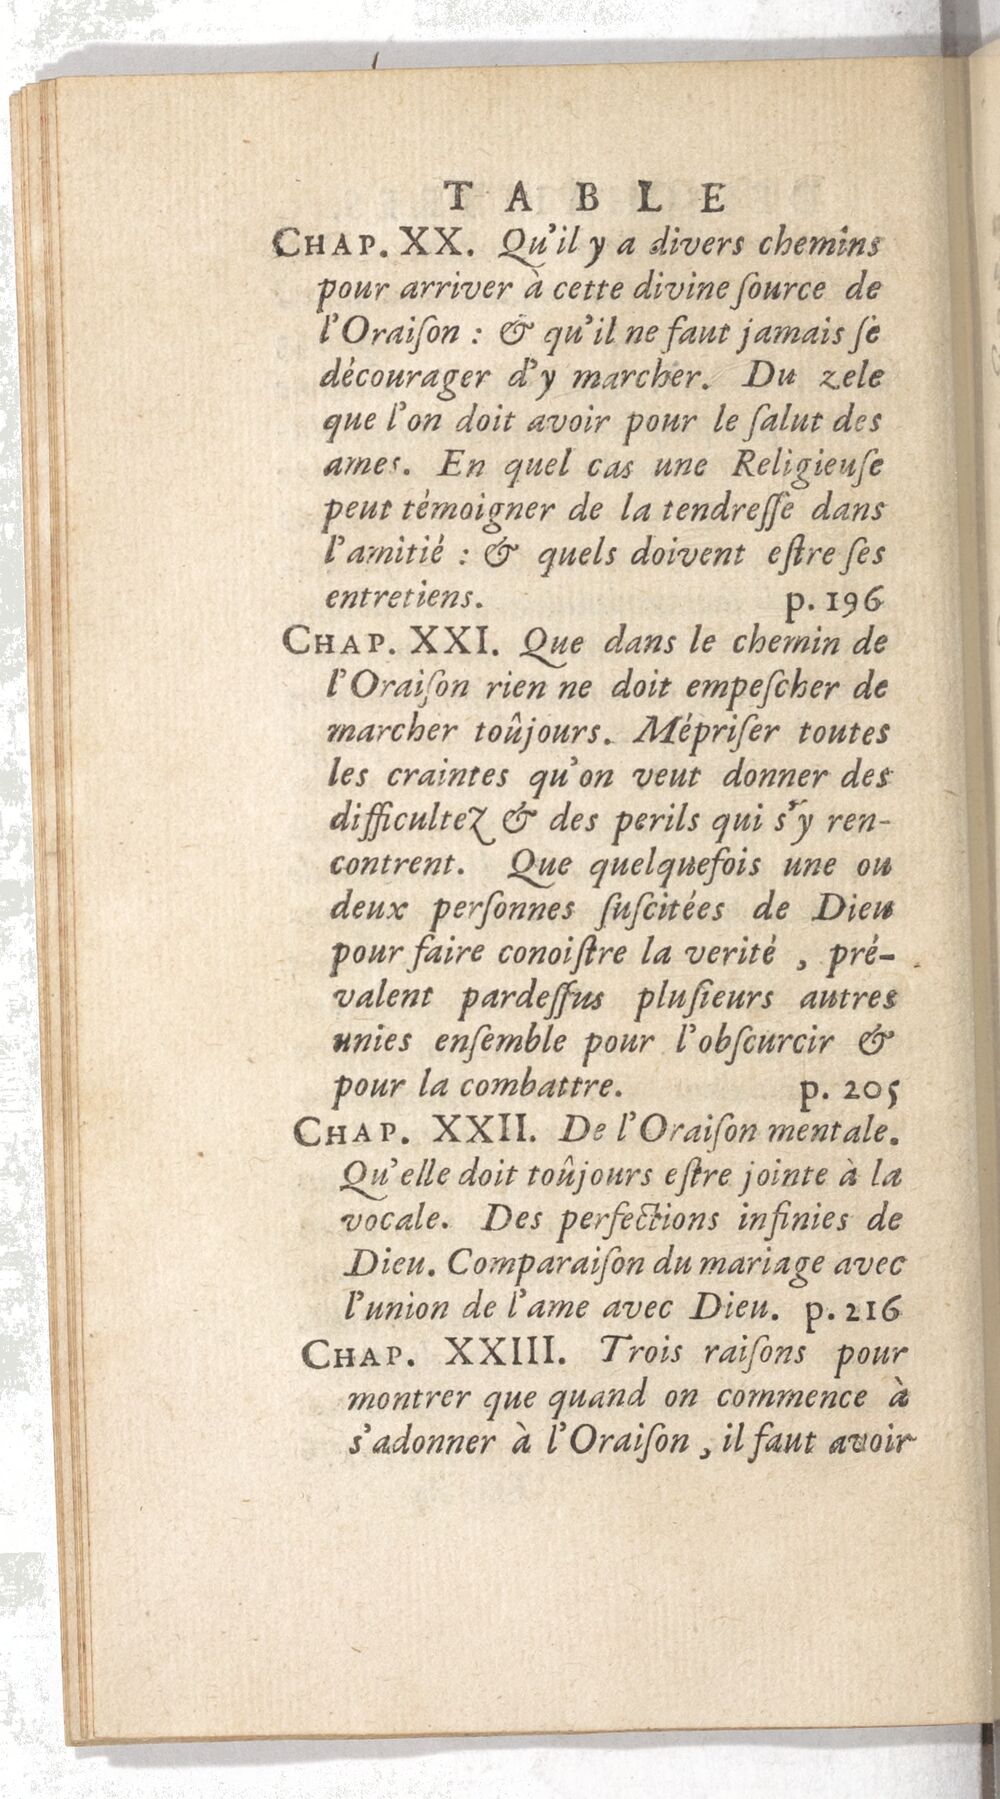 TABLE
CHAP. XX. Qu'il y a divers chemins
pour arriver à cette divine ſource de
l'Oraiſon : & qu'il ne faut jamais ſe
décourager d'y marcher. Du zele
que l'on doit avoir pour le ſalut des
ames. En quel cas une Religieuſe
peut témoigner de la tendreſſe dans
l'amitié : & quels doivent eſtre ſes
entretiens. p. 196
CHAP. XXI. Que dans le chemin de
l'Oraiſon rien ne doit empeſcher de
marcher toûjours. Mépriſer toutes
les craintes qu'on veut donner des
difficultez & des perils qui s'y ren-
contrent. Que quelquefois une ou
deux perſonnes ſuſcitées de Dieu
pour faire conoiſtre la verité , pré-
valent pardeſſus pluſieurs autres
unies enſemble pour l'obſcurcir &
pour la combattre. p. 205
CHAP. XXII. De l'Oraiſon mentale.
Qu'elle doit toûjours eſtre jointe à la
vocale. Des perfections infinies de
Dieu. Comparaiſon du mariage avec
l'union de l'ame avec Dieu. p. 216
CHAP. XXIII. Trois raiſons pour
montrer que quand on commence à
s'adonner à l'Oraiſon , il faut avoir